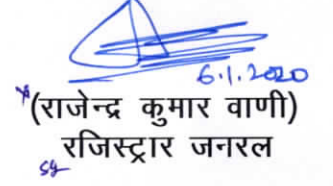 6.1.2020
(राजेन्द्र कुमार वाणी)
रजिस्ट्रार जनरल